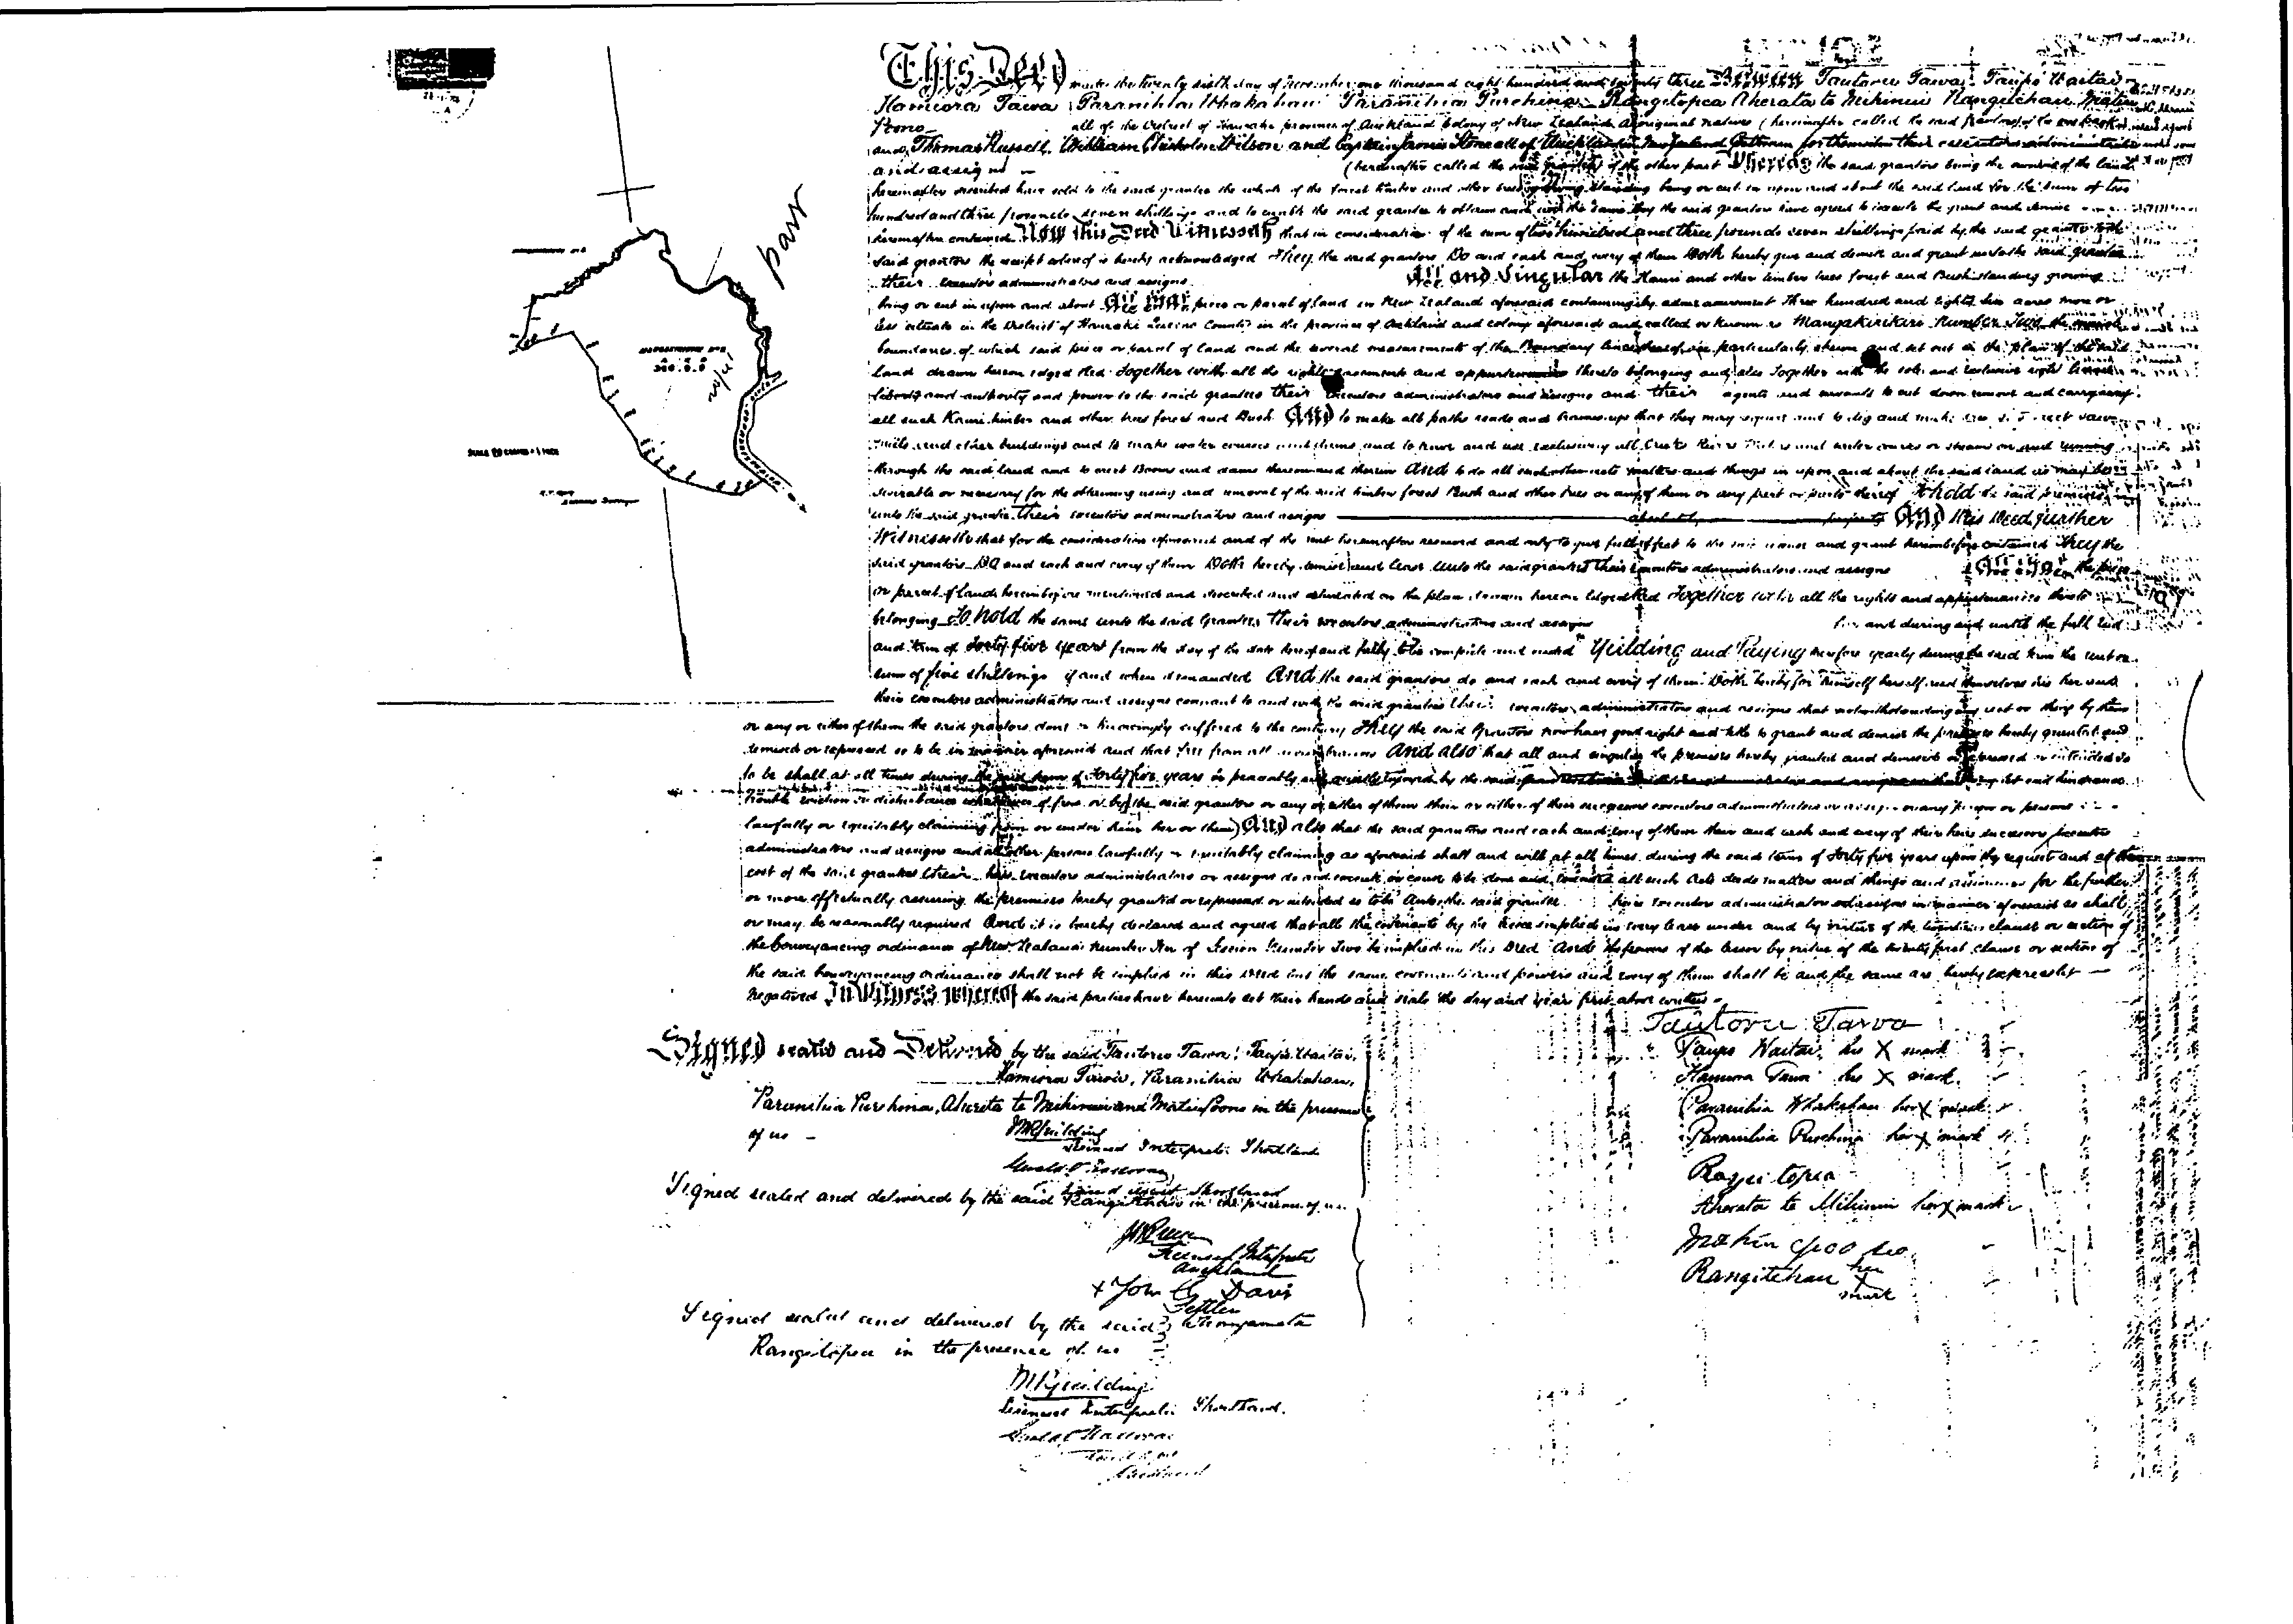 This Deed made the twenty sixth day of November one thousand eight hundred and seventy three Between Tautoru Tawa, Taupo Waitai
Hamiora Tawa Paranihia Whakahau Paranihia Purehina Rangitopea Aherata te Mihinui Rangitehau Matiu
Poono all of the District of Hauraki province of Auckland Colony of New Zealand Aboriginal natives (hereinafter called the said grantors) of the one part
and Thomas Russell, William Chisholm Wilson and Captain James Stone all of Auckland in New Zealand Gentlemen for themselves their executors administrators
and assigns (hereinafter called the said grantees) of the other part Whereas the said grantors being the owners of the land
hereinafter described have sold to the said grantees the whole of the forest timber and other trees growing standing being or cut in upon and about the said land for the sum of two
hundred and three pounds seven shillings and to enable the said grantees to obtain and the same they the said grantors have agreed to execute the grant and demise
hereinafter contained Now this Deed Witnesseth that in consideration of the sum of two hundred and three pounds seven shillings paid by the said grantees to the
said grantors the receipt whereof is hereby acknowledged They the said grantors Do and each and every of them Doth hereby give and demise and grant unto the said grantees
their executors administrators and assigns All and Singular the Kauri and other timber trees forest and Bush standing growing
being or cut in upon and about All that piece or parcel of land in New Zealand aforesaid containing by admeasurement Three hundred and eighty six acres more or
less situate in the District of Hauraki County in the province of Auckland and colony aforesaid and called or known as Mangakirikiri Number Two the
boundaries of which said piece or parcel of land and the several measurements of the Boundary lines thereof are particularly shewn and set out in the plan of the said
land drawn hereon edged Red Together with all the rights easements and appurtenances thereto belonging and also Together with the sole and exclusive right
liberty and authority and power to the said grantees their executors administrators and assigns and their agents and servants to cut down remove and carry away
all such Kauri timber and other trees forest and Bush And to make all paths roads and tramways that they may require and to dig and make erect saw
mills and other buildings and to make water courses and dams and to have and use exclusively all Creeks Rivers and water courses or streams on and running
through the said land and to erect Booms and dams thereon and therein And to do all such other acts matters and things in upon and about the said land as may be
desirable or necessary for the obtaining using and removal of the said timber forest Bush and other trees or any of them or any part or parts thereof To hold the said premises
unto the said grantees their executors administrators and assigns absolutely And this Deed further
Witnesseth that for the consideration aforesaid and of the rent hereinafter reserved and only to give full effect to the and grant hereinbefore contained They the
said grantors Do and each and every of them Doth hereby demise and lease unto the said grantees their executors administrators and assigns All that the piece
or parcel of land hereinbefore mentioned and described and delineated on the plan drawn hereon edged Red Together with all the rights and appurtenances thereto
belonging To hold the same unto the said Grantees Their executors administrators and assigns for and during and until the full end
and term of Forty five years from the day of the date hereof and fully to be complete and ended Yeilding and Paying therefore yearly during the said term the rent or
sum of five shillings if and when demanded And the said grantors do and each and every of them Doth hereby for himself herself and themselves his her and
their executors administrators and assigns covenant to and with the said grantees their executors administrators and assigns that notwithstanding any act or thing by them
or any or either of them the said grantors done or knowingly suffered to the contrary They the said Grantors now have good right and title to grant and demise the premises hereby granted and
demised or expressed so to be in manner aforesaid and that free from all incumbrances And also that all and singular the premises hereby granted and demised or expressed or intended so
to be shall at all times during the said term of Forty five years be peaceably and quietly enjoyed by the said let suit hindrance
trouble eviction or disturbance whatsoever of from or by the said grantors or any or either of them their or either of their successors executors administrators or assigns or any person or persons
lawfully or equitably claiming from or under him her or them And also that the said grantors and each and every of them their and each and every of their heirs successors executors
administrators and assigns and all other persons lawfully or equitably claiming as aforesaid shall and will at all times during the said term of Forty five years upon the request and at the
cost of the said grantees their executors administrators or assigns do and execute or cause to be done and executed all such acts deeds matters and things and assurances for the further
or more effectually assuring the premises hereby granted or expressed or intended so to be unto the said grantees their executors administrators and assigns in manner aforesaid as shall
or may be reasonably required And it is hereby declared and agreed that all the covenants by the lessee implied in every lease under and by virtue of the clause or section of
the Conveyancing ordinance of New Zealand Number Ten of Session Number Two be implied in this Deed And the powers of the lessor by virtue of the twenty first clause or section of
the said Conveyancing ordinance shall not be implied in this Deed but the same covenants and powers and every of them shall be and the same are hereby expressly
negatived In Witness whereof the said parties have hereunto set their hands and seals the day and year first above written
parr
SCALE 20 CHAINS = 1 INCH
Signed sealed and Delivered by the said Tautoru Tawa, Taupo Waitai,
Hamiora Tawa, Paranihia Whakahau,
Paranihia Purehina, Aherata te Mihinui and Matiu Poono in the presence
of us
Licensed Interpreter Shortland
Land Agent Shortland
Signed sealed and delivered by the said Rangitehau in the presence of us
Licensed Interpreter
Auckland
+ John C Davis
Settler
Whangamata
Signed sealed and delivered by the said
Rangitopea in the presence of us
Licensed Interpreter Shortland.
Tautoru Tawa
Taupo Waitai his X mark
Hamiora Tawa his X mark
Paranihia Whakahau her X mark
Paranihia Purehina her X mark
Ragu itopea
Aherata te Mihinui her X mark
Matiu Poono
Rangitehau her
X
mark